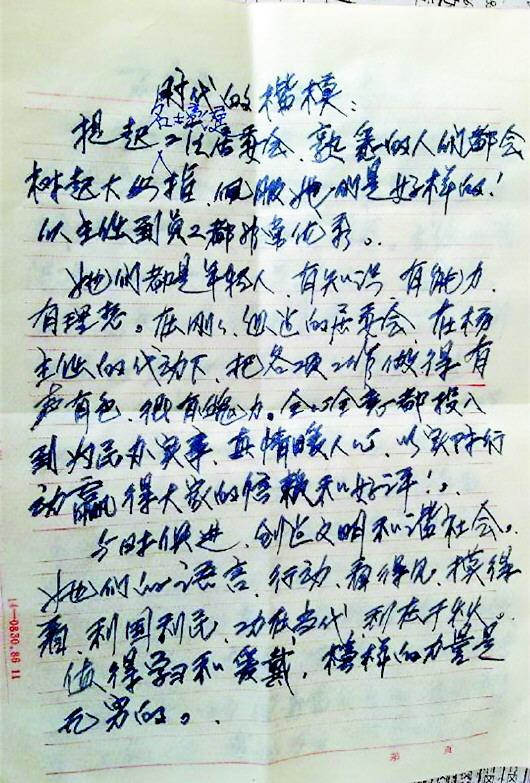 时代的楷模：
名士豪庭
想起二社居委会、熟悉的人们都会
树起大姆指、佩服她们是好样的！
从主任到员工都非常优秀。
她们都是年轻人、有知识、有能力、
有理想。在刚刚组建的居委会、在杨
主任的代动下、把各项工作做得有
声有色、很有魄力。全心全意都投入
到为民办实事、真情暖人心、以实际行
动赢得大家的信赖和好评！。
与时俱进、创造文明和谐社会。
她们的语言、行动、看得见、模得
着、利国利民、功在当代 利在千秋。
值得学习和爱戴，榜样的力量是
无穷的。
14—0830.86 11
第 页